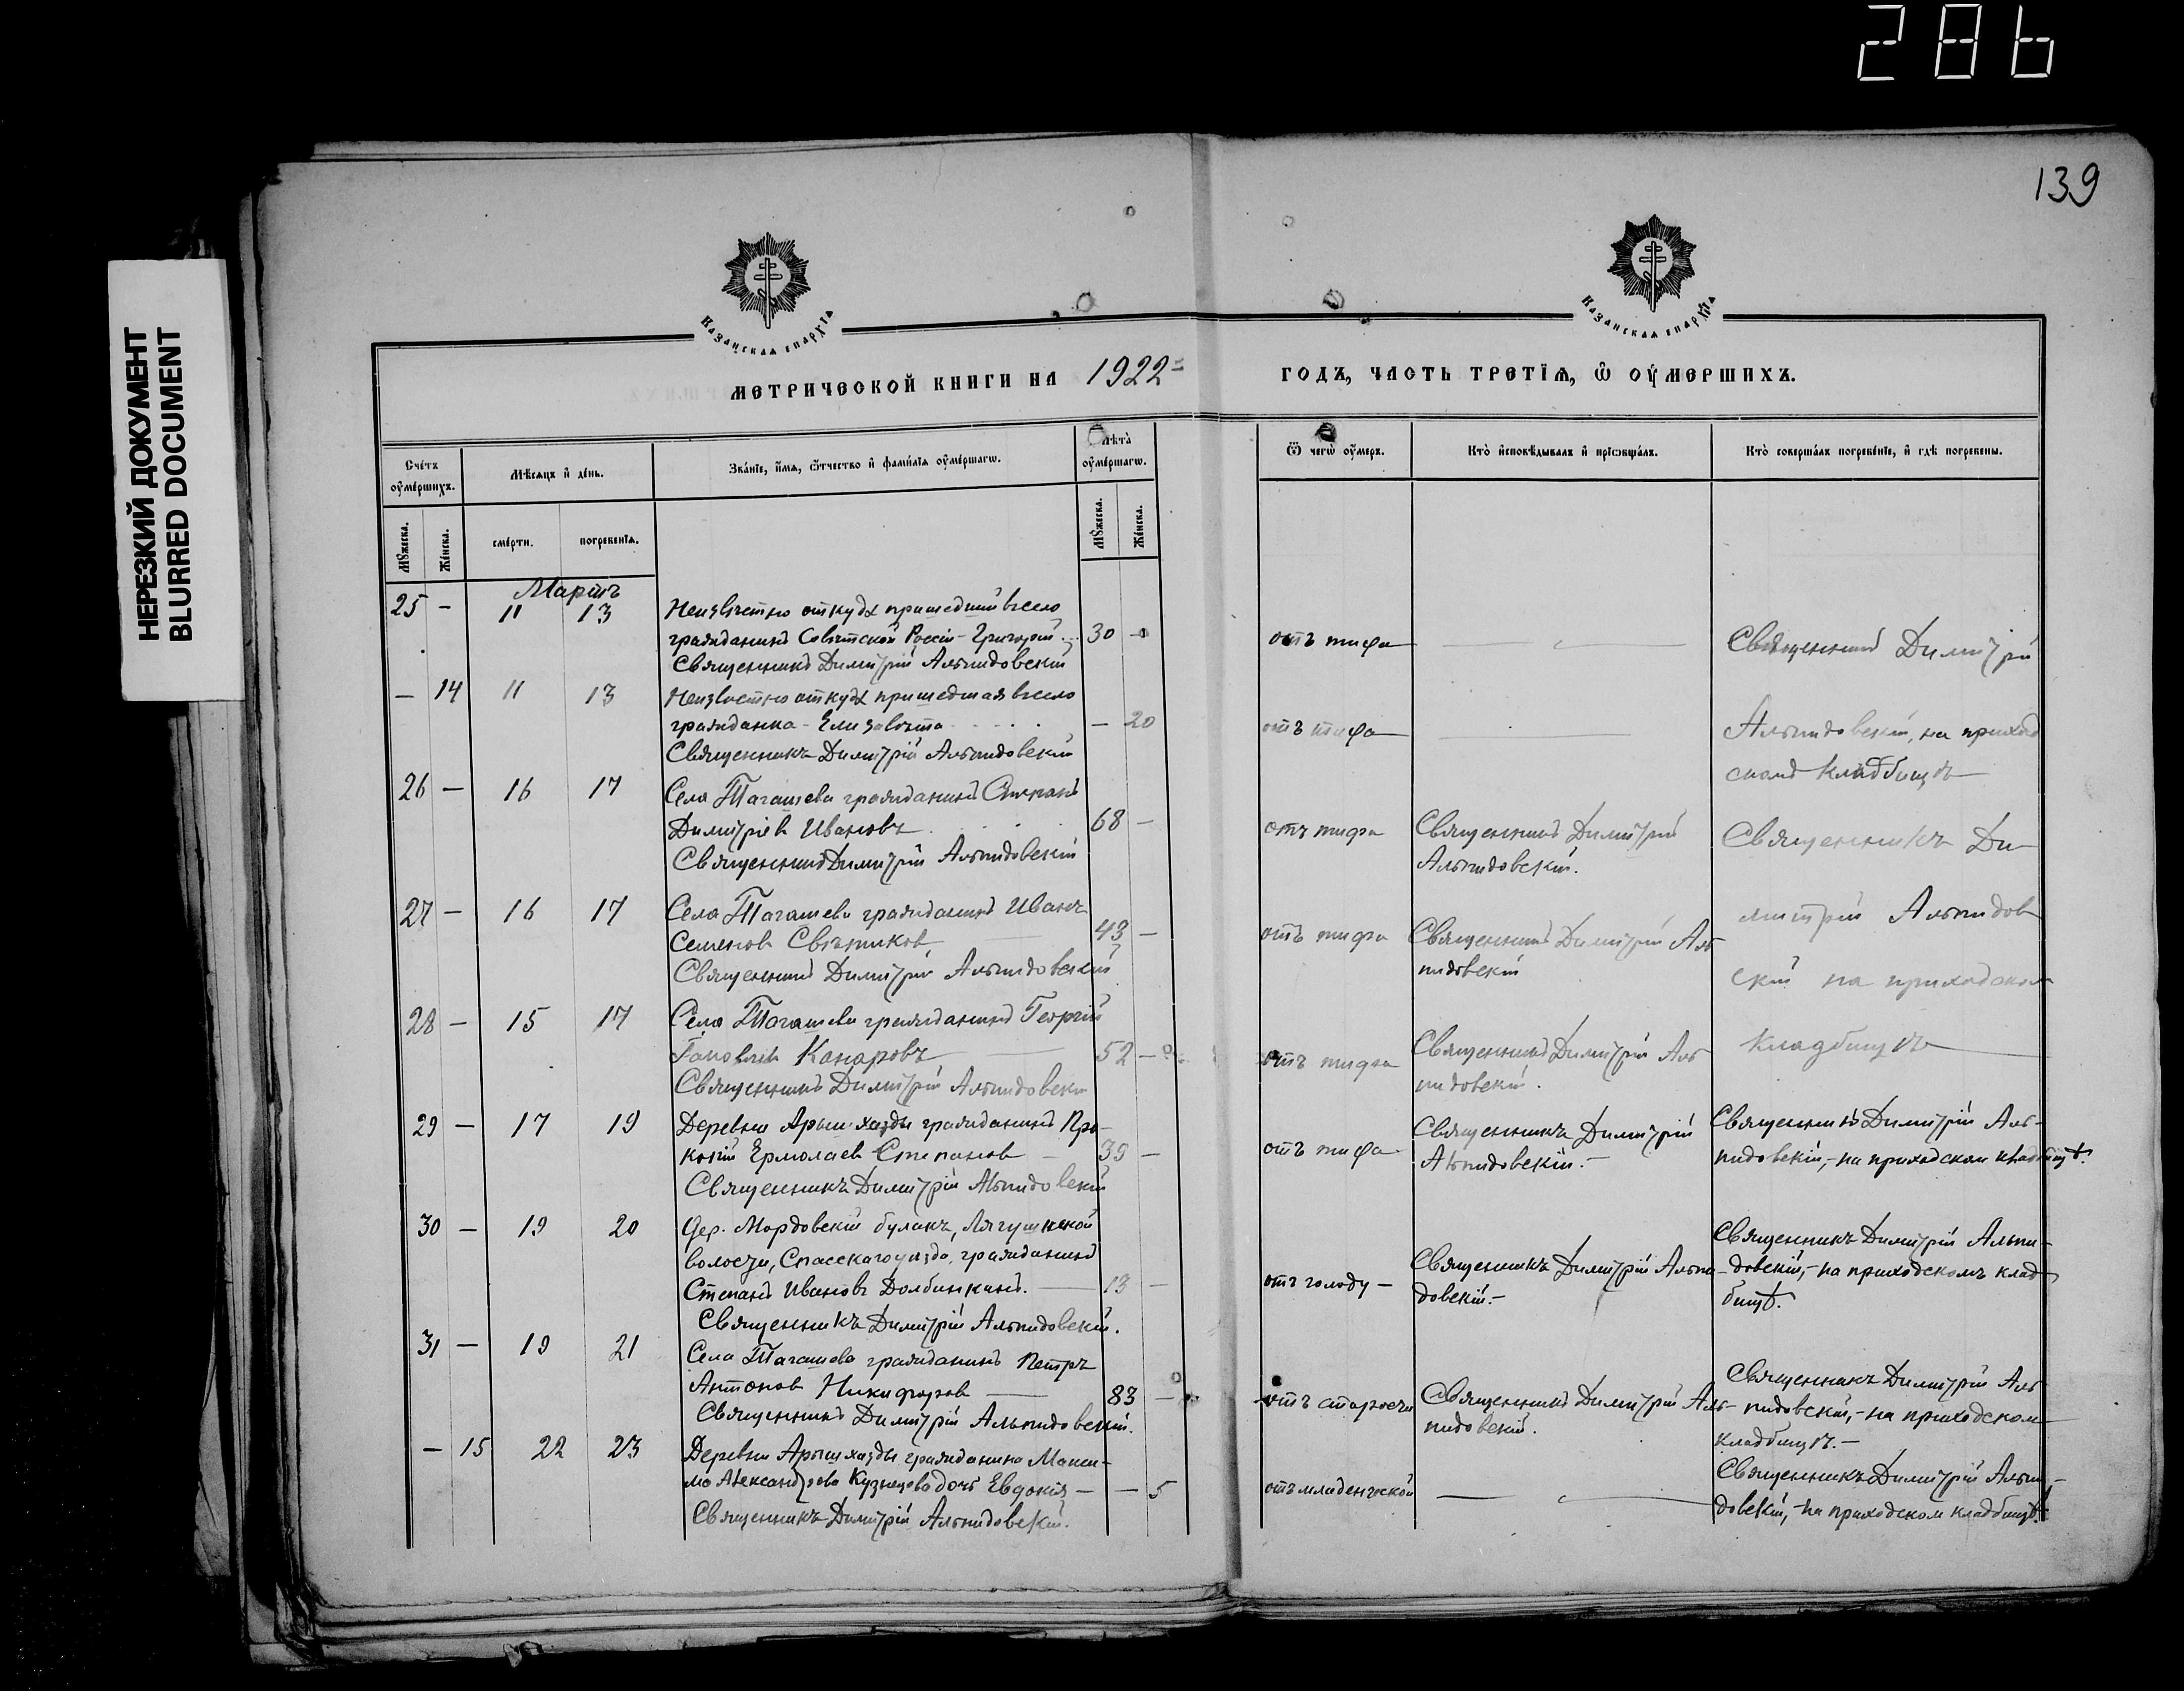 286
139
НЕРЕЗКИЙ ДОКУМЕНТ
BLURRED DOCUMENT
Казанская епархія
Казанская епархія
МЕТРИЧЕСКОЙ КНИГИ НА 1922 ГОДЪ, ЧАСТЬ ТРЕТІЯ, Ѿ ОУМЕРШИХЪ.
Счетъ оумершихъ.
Мѣсяцъ и день.
Званіе, имя, ѿтчество и фамилія оумершагѡ.
Лѣта оумершагѡ.
Ѿ чегѡ оумеръ.
Кто исповѣдывалъ и пріѡбщалъ.
Кто совершалъ погребеніе, и гдѣ погребены.
Мꙋжеска.
Женска.
смерти.
погребенія.
Мꙋжеска.
Женска.
Мартъ
25 — 11 13 Неизвѣстно откуда пришедшій въ село
гражданинъ Совѣтской Россіи - Григорій 30 —
Священникъ Димитрій Альпидовскій
отъ тифа
Священникъ Димитрій
— 14 11 13 Неизвѣстно откуда пришедшая въ село
гражданка - Елизавета — 20
Священникъ Димитрій Альпидовскій
отъ тифа
Альпидовскій, на приход
скомъ кладбищѣ
26 — 16 17 Села Тагашева гражданинъ Стефанъ
Димитріев Ивановъ 68 —
Священникъ Димитрій Альпидовскій
отъ тифа
Священникъ Димитрій
Альпидовскій.
Священникъ Ди
27 — 16 17 Села Тагашева гражданинъ Иванъ
Семенов Свѣчников 43 —
Священникъ Димитрій Альпидовскій
отъ тифа
Священникъ Димитрій Аль
пидовскій
митрій Альпидов
скій на приходском
28 — 15 17 Села Тагашева гражданинъ Георгій
52 —
Священникъ Димитрій Альпидовскій
отъ тифа
Священникъ Димитрій Аль
пидовскій.
кладбищѣ
29 — 17 19 Деревни гражданинъ Про-
копій Ермолаев Степанов — 35 —
Священникъ Димитрій Альпидовскій
отъ тифа
Священникъ Димитрій
Альпидовскій.-
Священникъ Димитрій Аль-
пидовскій,- на приходском кладбищѣ.
30 — 19 20 Дер. Мордовскій булакъ, Лягушкской
волости, Спасскаго уѣзда, гражданинъ
Степанъ Ивановъ Долбинкинъ. 13 —
Священникъ Димитрій Альпидовскій.
отъ голоду -
Священникъ Димитрій Альпи-
довскій.-
Священникъ Димитрій Альпи-
довскій,- на приходскомъ клад
бищѣ.
31 — 19 21 Села Тагашева гражданинъ Петръ
Антонов Никифоров 83 —
Священникъ Димитрій Альпидовскій.
отъ старости
Священникъ Димитрій Аль-
пидовскій.
Священникъ Димитрій Аль
пидовскій,- на приходском
кладбищѣ.-
— 15 22 23 Деревни гражданина Макси-
ма Александрова Кузнецова дочь Евдокія — — 5
Священникъ Димитрій Альпидовскій.
отъ младенческой
Священникъ Димитрій Альпи-
довскій,- на приходском кладбищѣ.